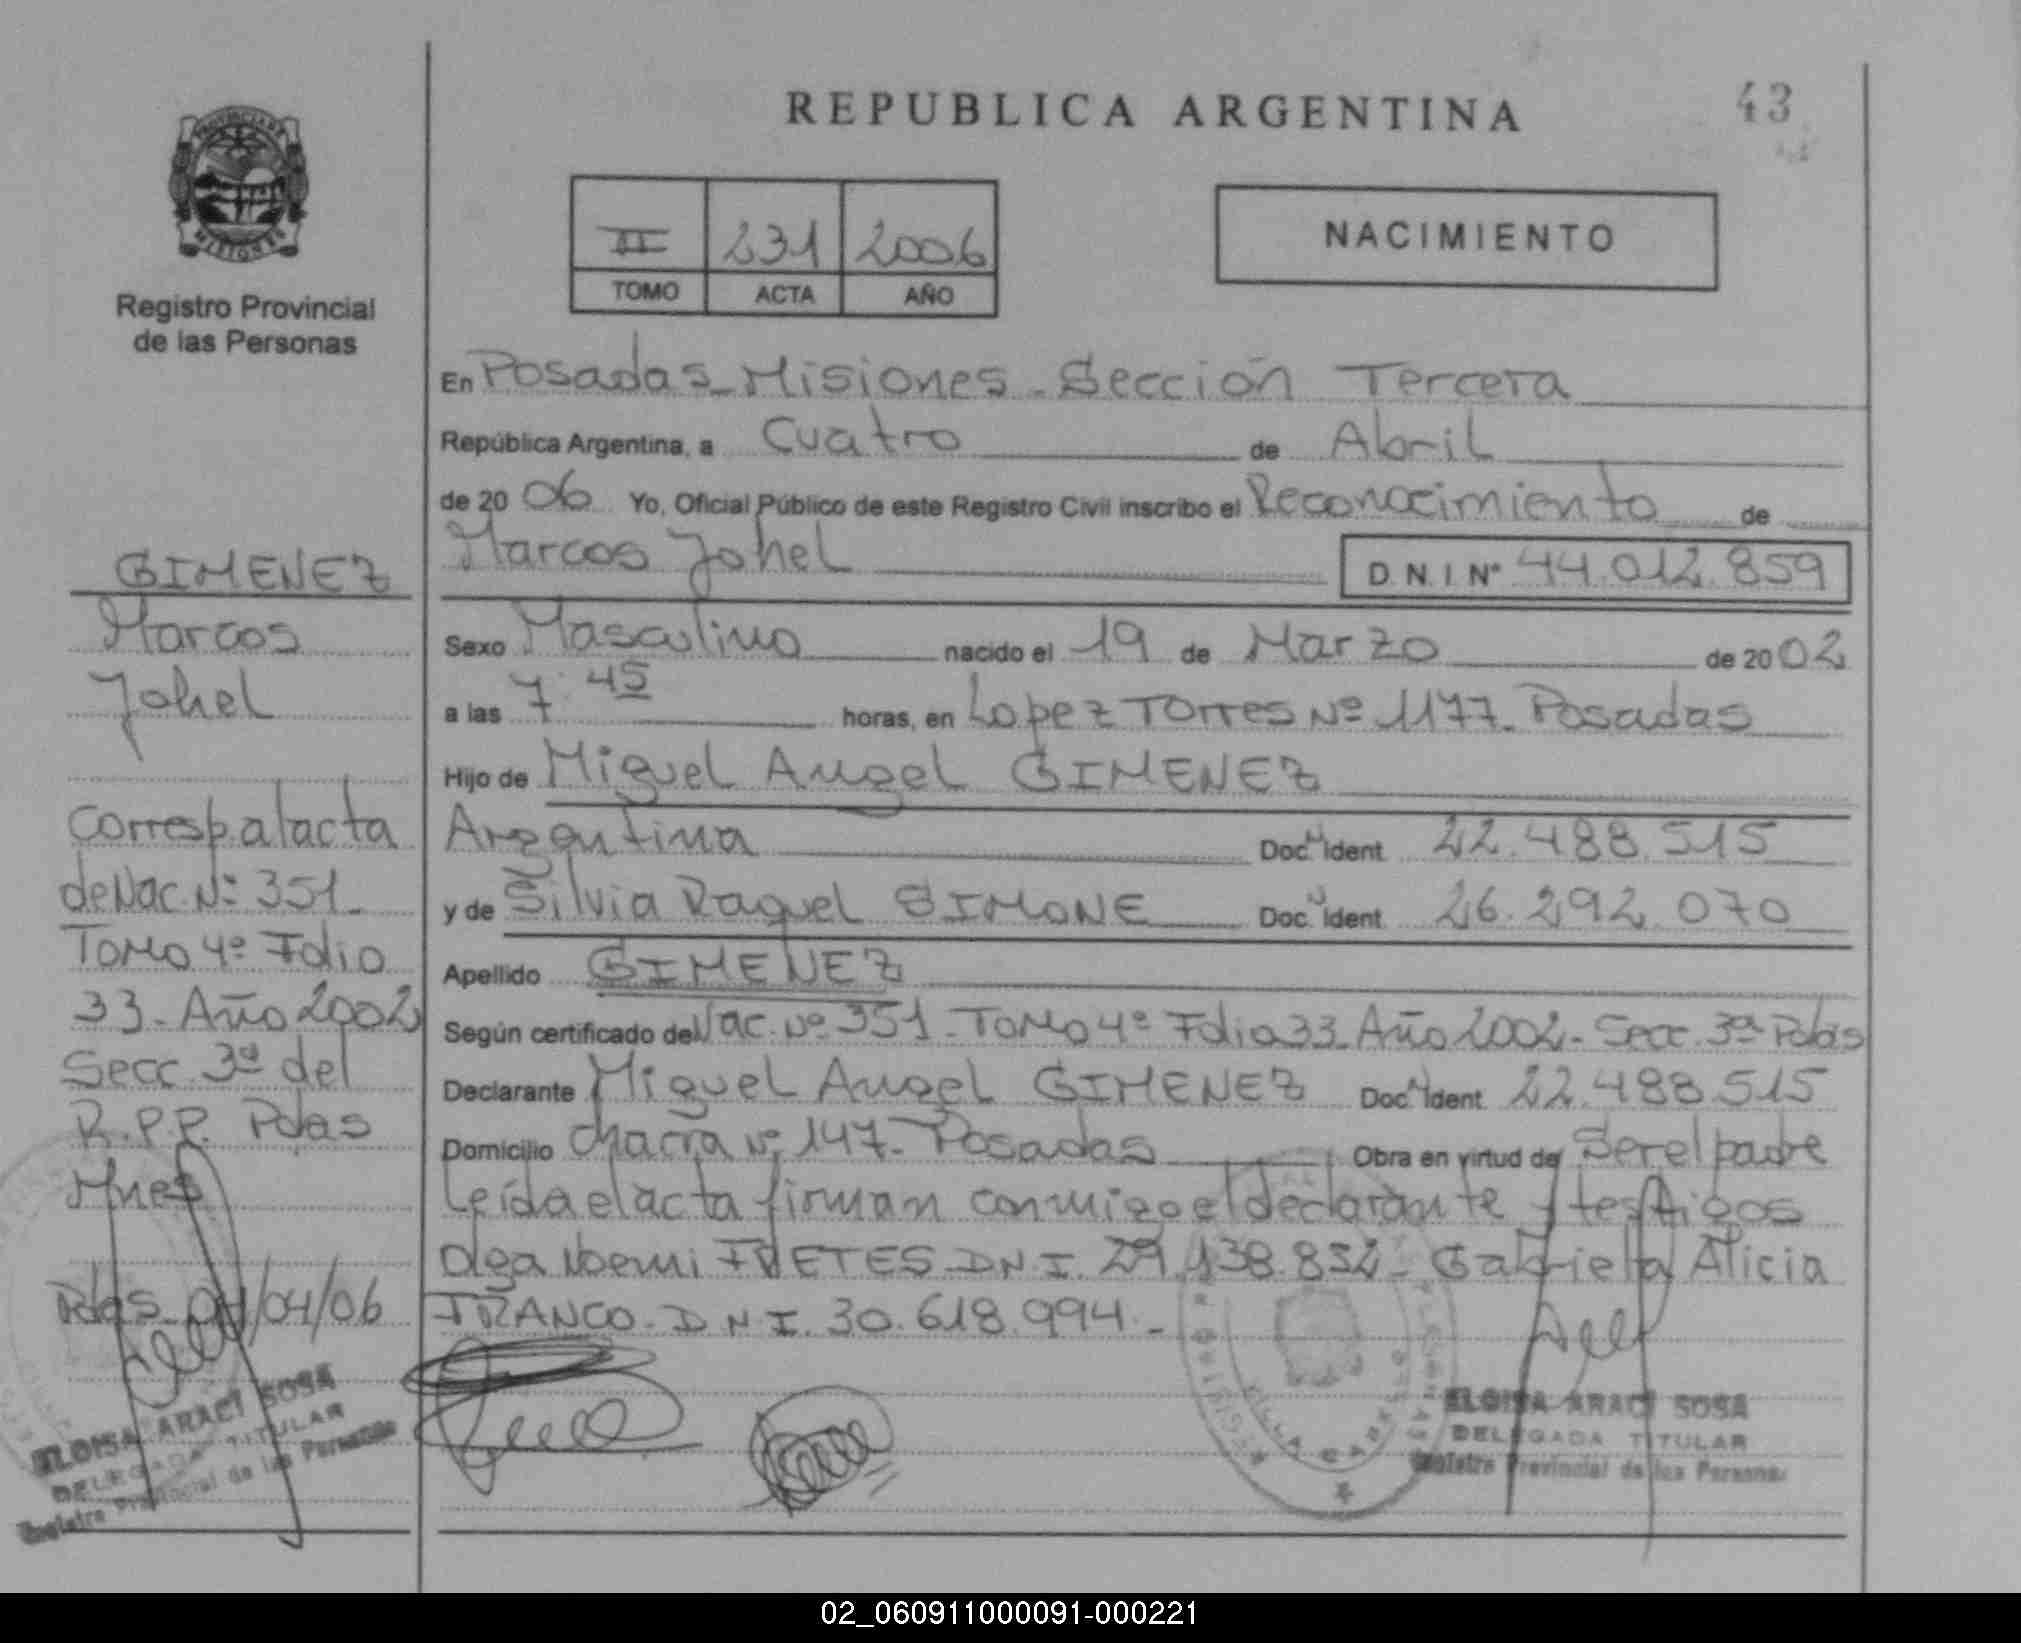 REPUBLICA ARGENTINA
43
PROVINCIA DE
MISIONES
Registro Provincial
de las Personas
II 231 2006
TOMO ACTA AÑO
NACIMIENTO
En Posadas - Misiones - Sección Tercera
República Argentina, a Cuatro de Abril
de 2006 Yo, Oficial Público de este Registro Civil inscribo el Reconocimiento de
Marcos Johel D N I Nº 44.012.859
Sexo Masculino nacido el 19 de Marzo de 2002
a las 7:45 horas, en Lopez Torres Nº 1177 - Posadas
Hijo de Miguel Angel GIMENEZ
Argentina Doc. N Ident 22.488.515
y de Silvia Raquel SIMONE Doc. N Ident 26.292.070
Apellido GIMENEZ
Según certificado de Nac. Nº 351 - Tomo 4º Folio 33 - Año 2002 - Secc. 3ª Pdas
Declarante Miguel Angel GIMENEZ Doc. N Ident 22.488.515
Domicilio Chacra Nº 147 - Posadas Obra en virtud de Ser el padre
Leída el acta firman conmigo el declarante y testigos
Olga Noemi DNI. 29.138.832 - Gabriela Alicia
FRANCO - DNI. 30.618.994 -
GIMENEZ
Marcos
Johel
Corresp. al acta
de Nac. Nº 351 -
Tomo 4º Folio
33 - Año 2002
Secc. 3ª del
R.P.P. Pdas
Mnes
Pdas 04/04/06
ELOISA ARACI SOSA
DELEGADA TITULAR
Registro Provincial de las Personas
ELOISA ARACI SOSA
DELEGADA TITULAR
Registro Provincial de las Personas
02_060911000091-000221